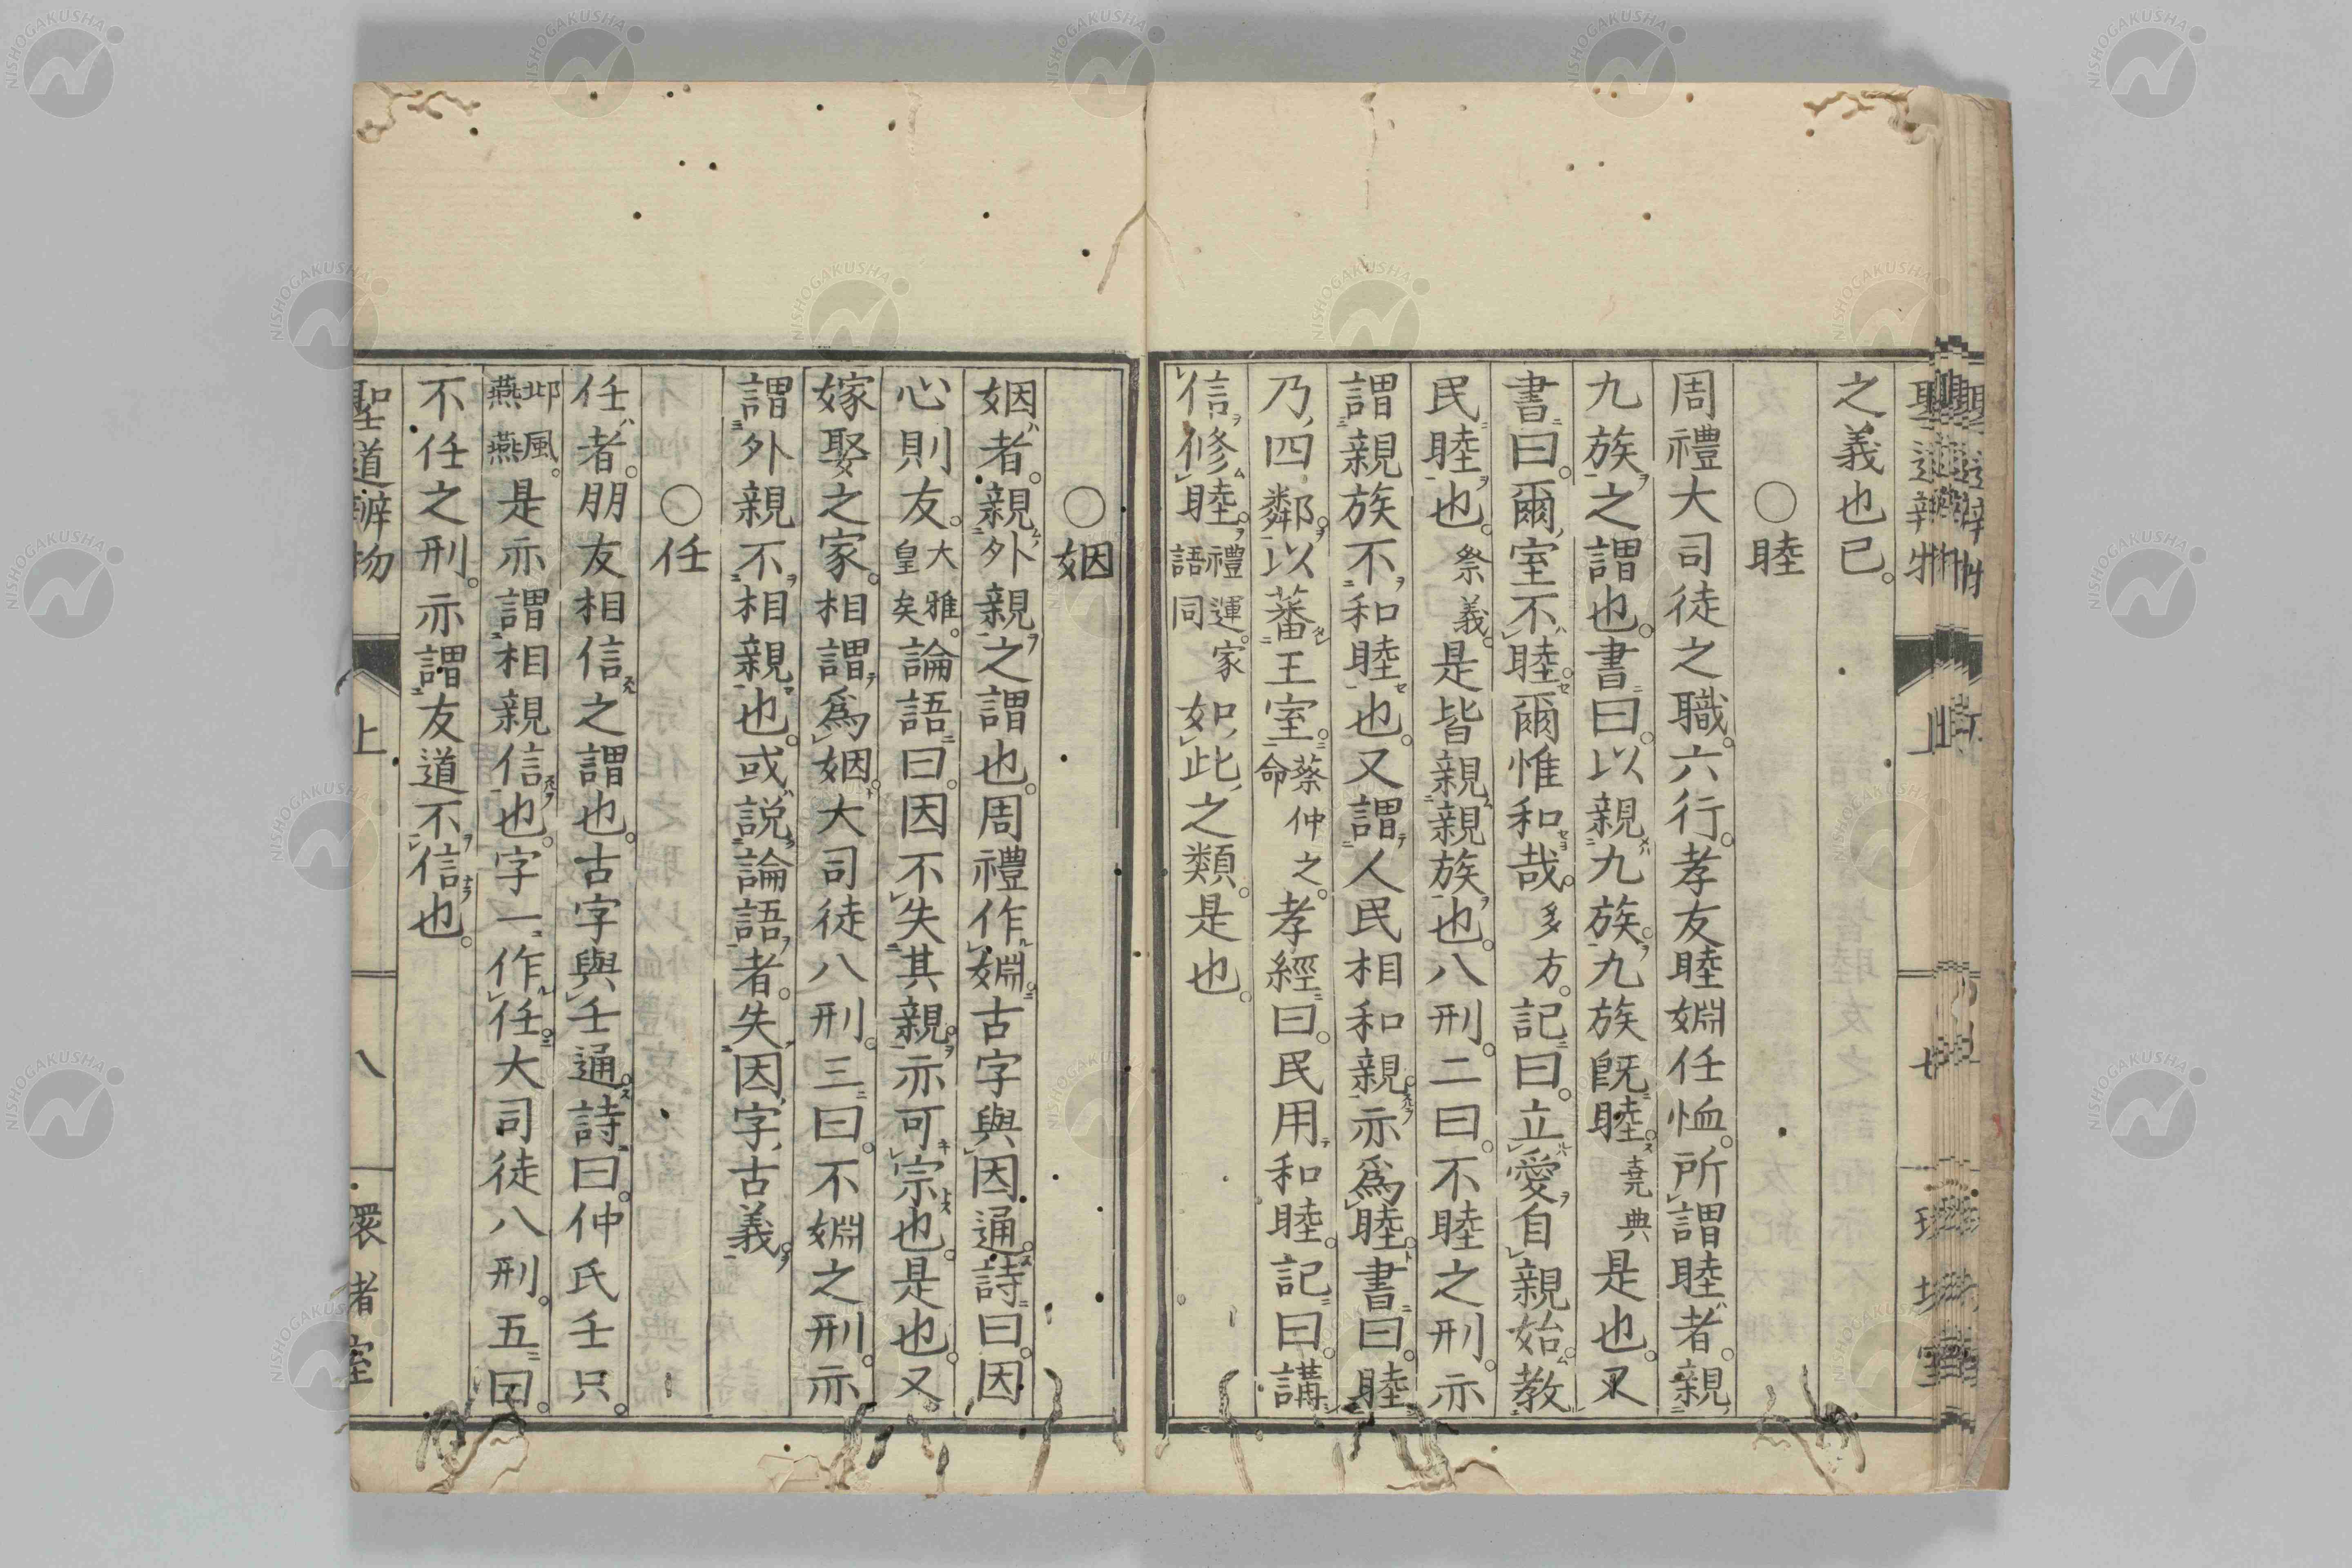 之義也已。
○睦
周禮大司徒之職。六行。孝友睦婣任恤。所謂睦者。親
九族之謂也。書曰。以親九族。九族既睦。堯典是也。又
書曰。爾室不睦。爾惟和哉。多方。記曰。立愛自親始。教
民睦也。祭義。是皆親親族也。八刑。二曰。不睦之刑。亦
謂親族不和睦也。又謂人民相和親。亦爲睦。書曰。睦
乃四鄰。以蕃王室。蔡仲之命。孝經曰。民用和睦。記曰。講
信修睦。禮運。家語同 如此之類。是也。
○姻
姻者。親外親之謂也。周禮作婣。古字與因通。詩曰。因
心則友。大雅。皇矣 論語曰。因不失其親。亦可宗也。是也。又
嫁娶之家。相謂爲姻。大司徒八刑。三曰。不婣之刑。亦
謂外親不相親也。或説論語者。失因字古義。
○任
任者。朋友相信之謂也。古字與壬通。詩曰。仲氏壬只。
邶風。燕燕 是亦謂相親信也。字一作任。大司徒八刑。五曰。
不任之刑。亦謂友道不信也。
聖道辨物 上 八 環堵室
NISHOGAKUSHA